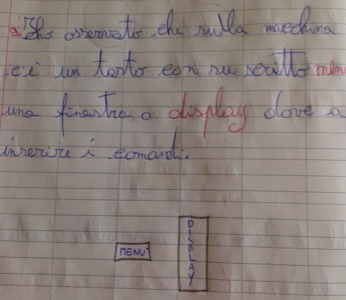 Ho osservato che sulla macchina
c'è un tasto con su scritto menu
una finestra o display dove a
inserire i comandi.
MENU
DISPLAY